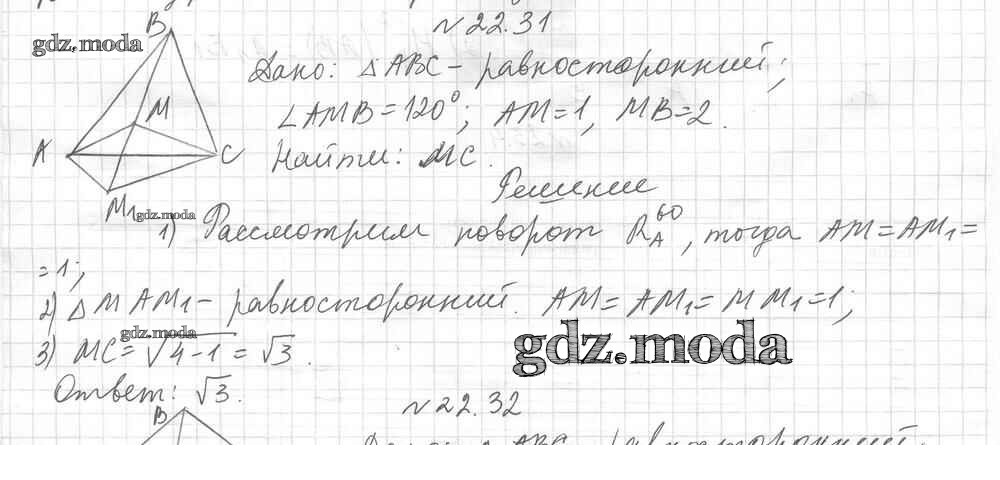 №22.31
B
gdz.moda
Дано: △ABC - равносторонний;
M
∠AMB=120°; AM=1, MB=2.
A
C
Найти: MC.
Решение
M₁
gdz.moda
1) Рассмотрим поворот R_A^60, тогда AM=AM₁=
=1;
2) △MAM₁ - равносторонний. AM=AM₁=MM₁=1;
gdz.moda
3) MC=√4-1=√3.
gdz.moda
Ответ: √3.
№22.32
B